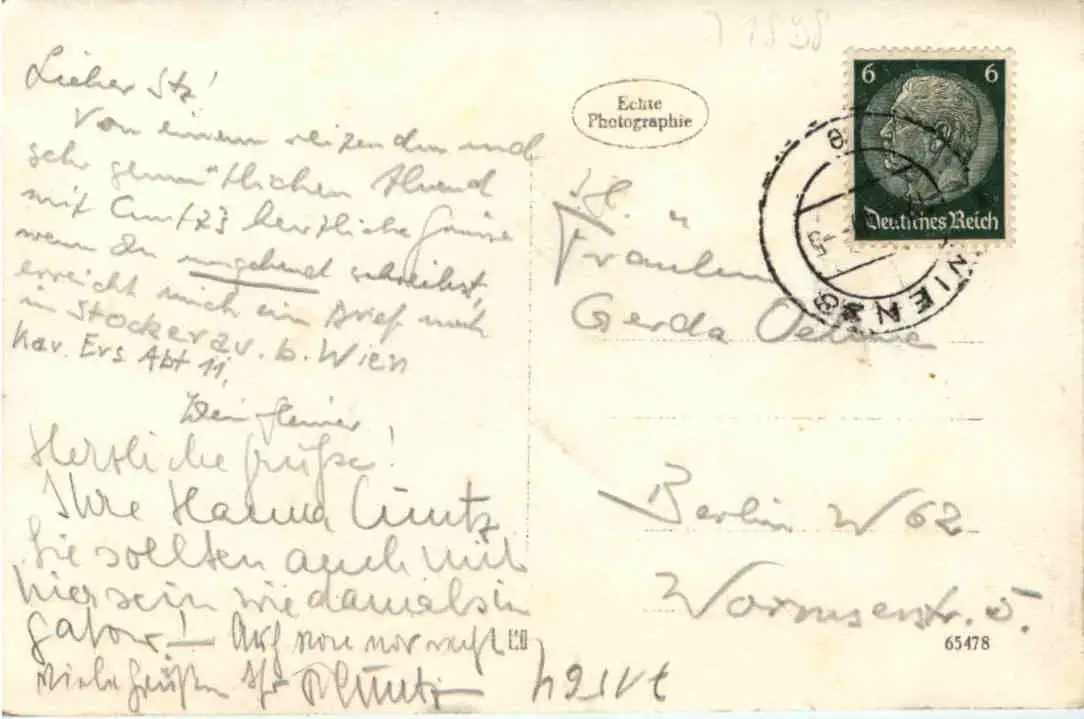 Lieber Stz!
Von einem reizenden und
sehr gemütlichen Abend
mit Cuntz3 herzliche Grüsse
wenn Du umgehend schreibst,
erreicht mich ein Brief noch
in Stockerau. b. Wien
Kav. Ers Abt 11,
Dein Heiner,
Herzliche Grüße!
Ihre Hanna Cuntz
Sie sollten auch mit
hier sein wie damals in
Gatow! Auf
viele Grüßen Ihr Cuntz
Echte
Photographie
6 6
Deutsches Reich
WIEN
Fräulein
Gerda
Berlin W 62
Wormserstr. 5.
65478